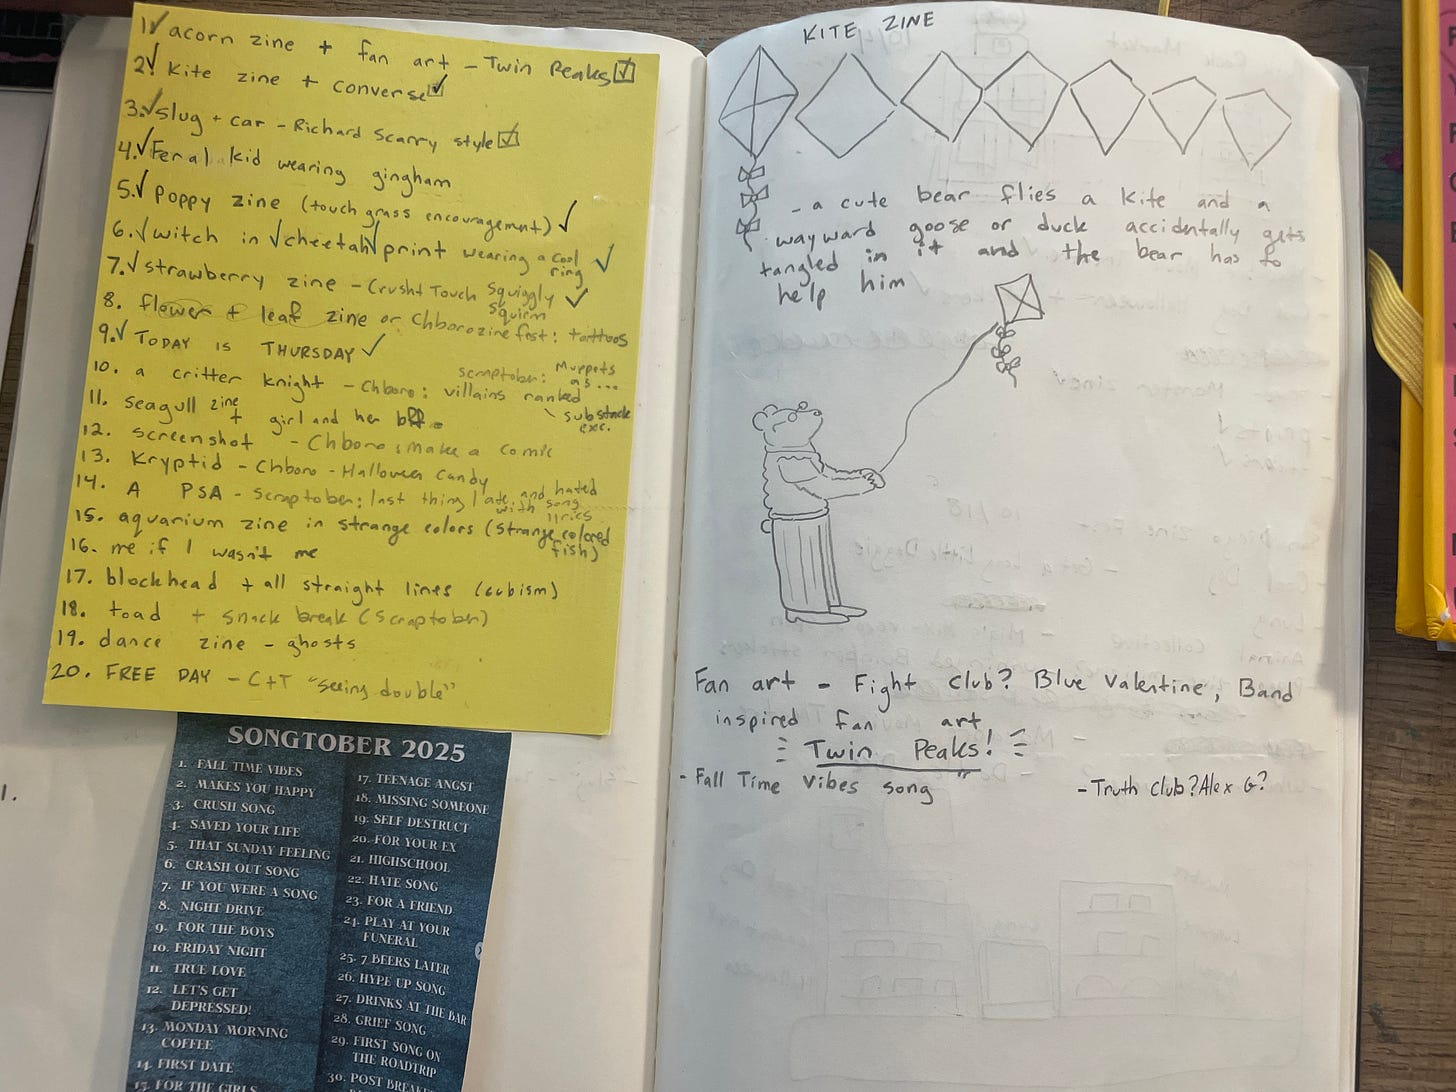 1.✓ acorn zine + fan art - Twin Peaks ☑
2.✓ Kite zine + converse ☑
3.✓ slug + car - Richard Scarry style ☑
4.✓ Feral kid wearing gingham
5.✓ poppy zine (touch grass encouragement) ✓
6.✓ witch in ✓cheetah✓print wearing a cool ring ✓
7.✓ strawberry zine - Crush't Touch Squiggly Squirm ✓
8. flower + leaf zine or Chborozine fest: tattoos
9.✓ TODAY IS THURSDAY ✓
scraptober: Muppets as...
10. a critter knight - Chboro: villains ranked
substack exc.
11. seagull zine + girl and her bff.
12. screenshot - Chboro: make a comic
13. Kryptid - Chboro - Halloween Candy
14. A PSA - Scraptober: last thing I ate and hated with song lyrics
15. aquarium zine in strange colors (strange colored fish)
16. me if I wasn't me
17. blockhead + all straight lines (cubism)
18. toad + snack break (Scraptober)
19. dance zine - ghosts
20. FREE DAY - C+T "seeing double"
SONGTOBER 2025
1. FALL TIME VIBES
2. MAKES YOU HAPPY
3. CRUSH SONG
4. SAVED YOUR LIFE
5. THAT SUNDAY FEELING
6. CRASH OUT SONG
7. IF YOU WERE A SONG
8. NIGHT DRIVE
9. FOR THE BOYS
10. FRIDAY NIGHT
11. TRUE LOVE
12. LET'S GET
DEPRESSED!
13. MONDAY MORNING
COFFEE
14. FIRST DATE
15. FOR THE GIRLS
17. TEENAGE ANGST
18. MISSING SOMEONE
19. SELF DESTRUCT
20. FOR YOUR EX
21. HIGHSCHOOL
22. HATE SONG
23. FOR A FRIEND
24. PLAY AT YOUR
FUNERAL
25. 7 BEERS LATER
26. HYPE UP SONG
27. DRINKS AT THE BAR
28. GRIEF SONG
29. FIRST SONG ON
THE ROADTRIP
30. POST
1.
KITE ZINE
- a cute bear flies a kite and a
wayward goose or duck accidentally gets
tangled in it and the bear has to
help him
Fan art - Fight club? Blue Valentine, Band
inspired fan art
Twin Peaks!
- Fall Time Vibes song
- Truth Club? Alex G?